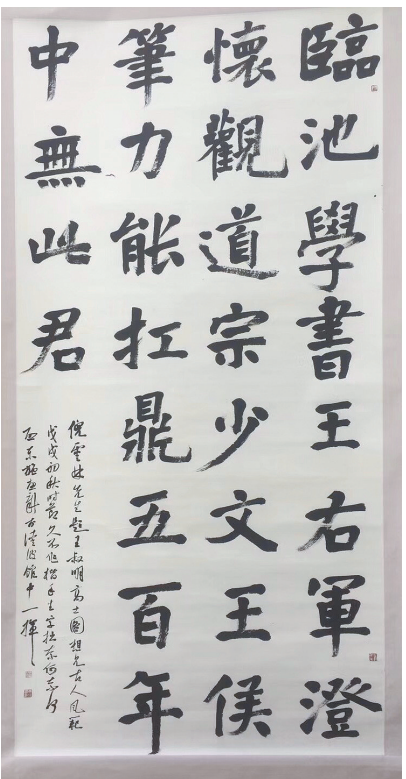 臨池學書王右軍澄
懷觀道宗少文王侯
筆力能扛鼎五百年
中無此君
倪雲林先生題王叔明高士圖想見古人風範
戊戌初秋時節久不作楷手生字拙奈何
館中一揮